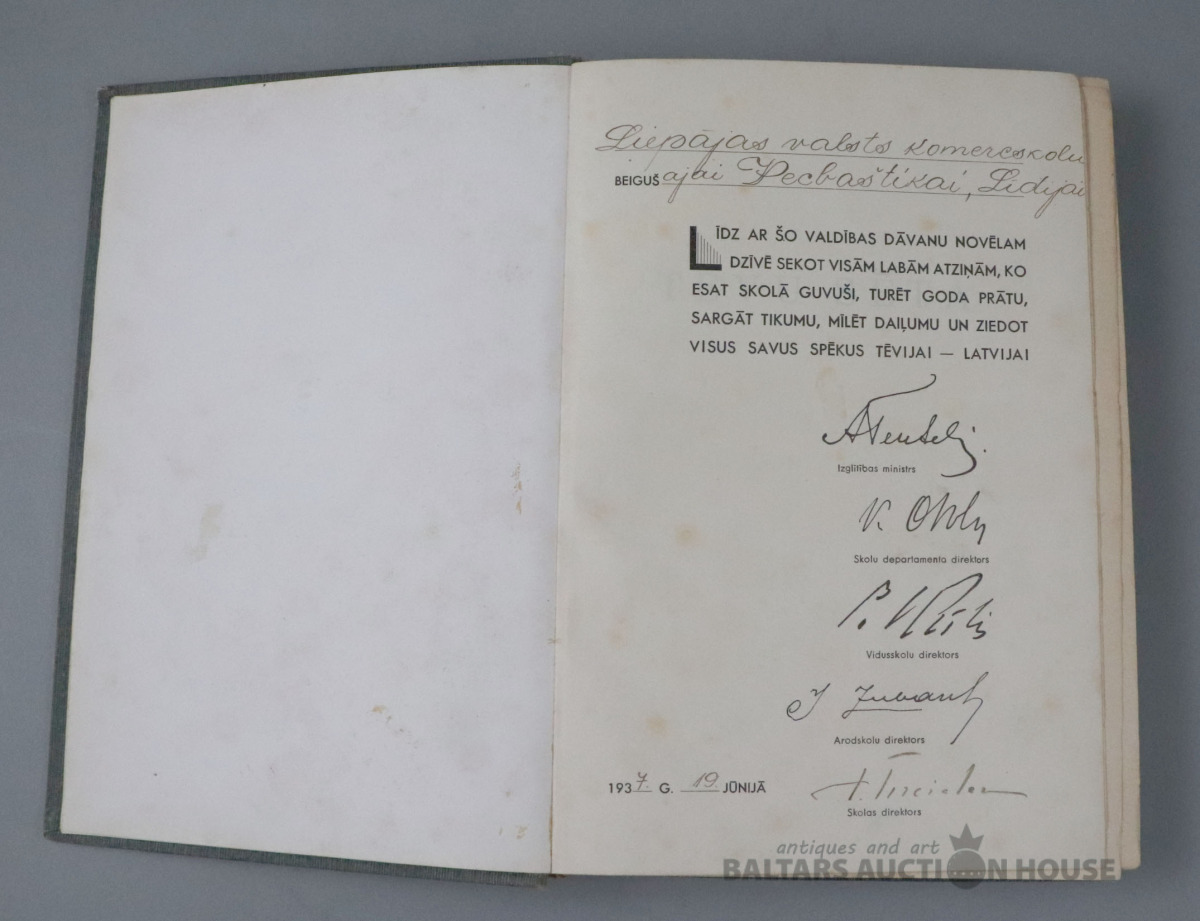 Liepājas valsts komercskolu
BEIGUŠajai Vecbaštikai, Lidijai
LĪDZ AR ŠO VALDĪBAS DĀVANU NOVĒLAM
DZĪVĒ SEKOT VISĀM LABĀM ATZIŅĀM, KO
ESAT SKOLĀ GUVUŠI, TURĒT GODA PRĀTU,
SARGĀT TIKUMU, MĪLĒT DAIĻUMU UN ZIEDOT
VISUS SAVUS SPĒKUS TĒVIJAI — LATVIJAI
Izglītības ministrs
Skolu departamenta direktors
Vidusskolu direktors
Arodskolu direktors
1937. G. 19. JŪNIJĀ
Skolas direktors
antiques and art
BALTARS AUCTION HOUSE